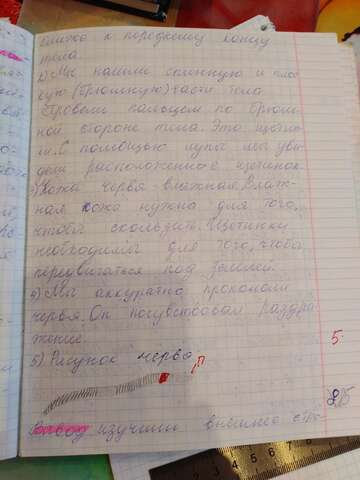 ближе к переднему концу
тела
2) Мы нашли спинную и плос
кую (брюшную) части тела
Провели пальцем по брюш
ной стороне тела. Это щетин
ки. С помощью лупы мы уви
дели расположение щетинок.
3) Кожа червя влажная. Влаж
ная кожа нужна для того,
чтобы скользить. Щетинки
необходимы для того, чтобы
передвигаться под землей.
4) Мы аккуратно прокололи
червя. Он почувствовал раздра
жение.
5) Рисунок червя
5
Вывод изучили внешнее стро
5 6 7 8 9 10